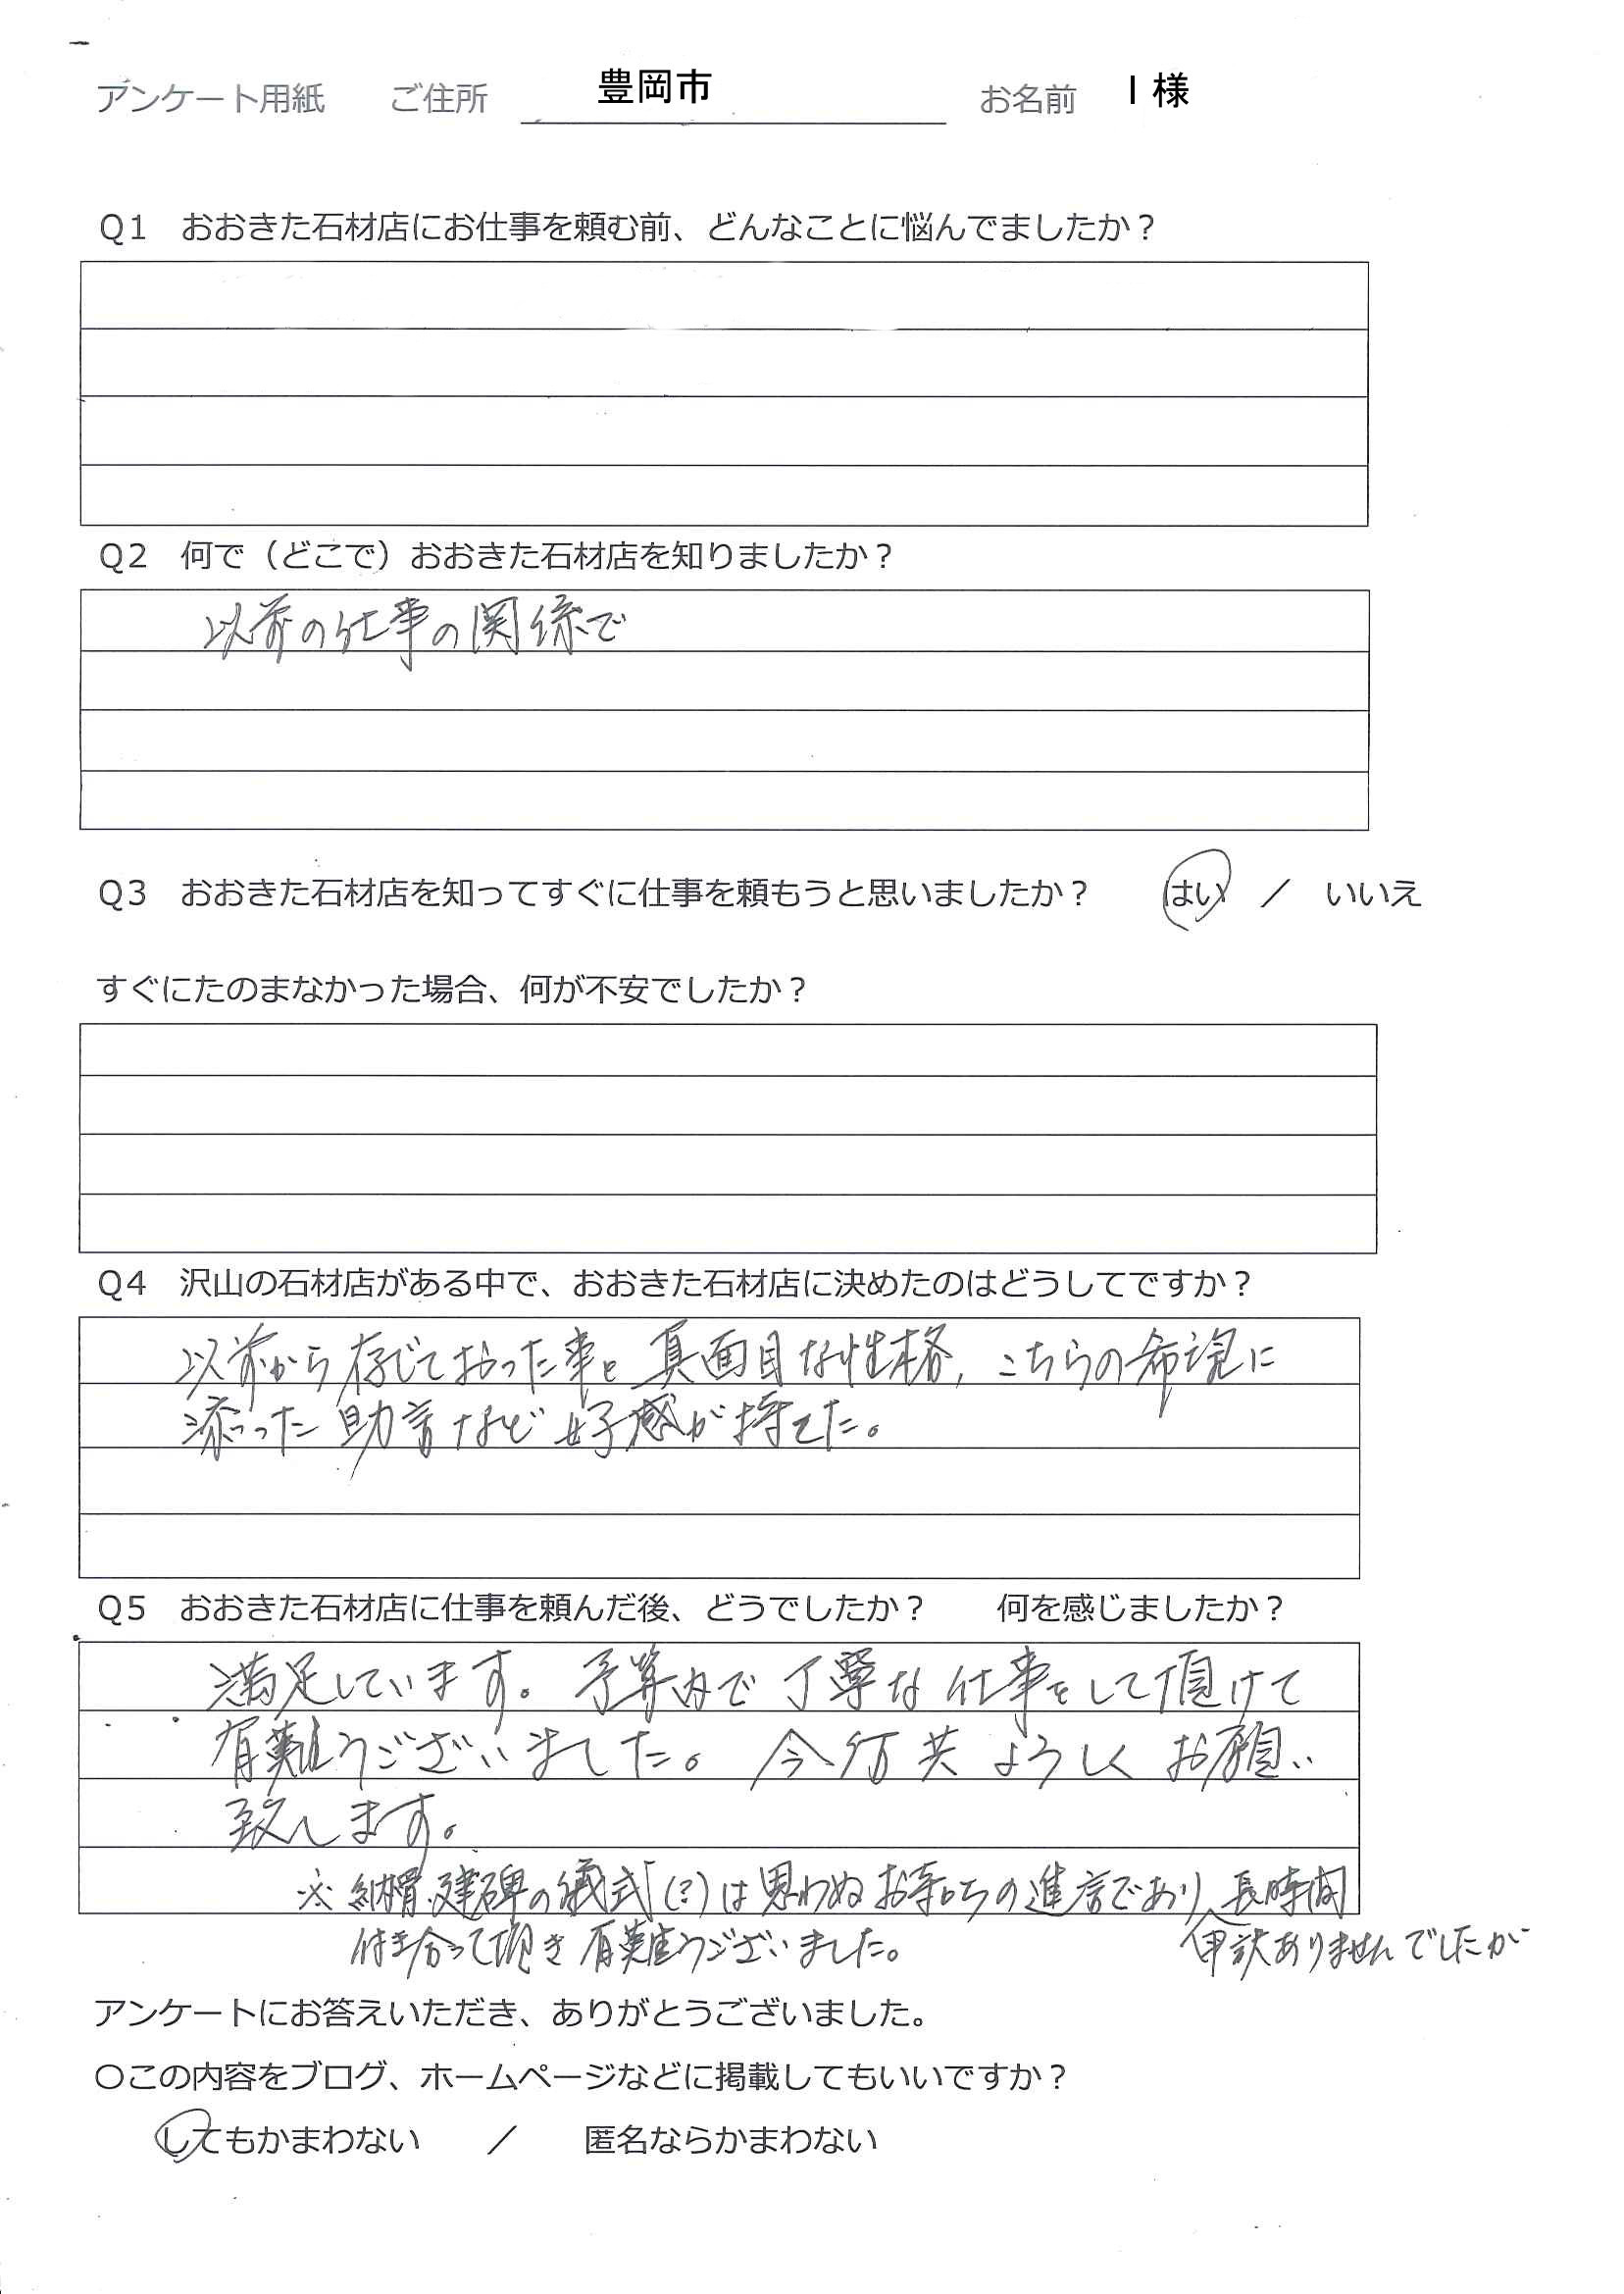 アンケート用紙　ご住所　豊岡市　お名前　I 様
Q1　おおきた石材店にお仕事を頼む前、どんなことに悩んでましたか？
Q2　何で（どこで）おおきた石材店を知りましたか？
以前の仕事の関係で
Q3　おおきた石材店を知ってすぐに仕事を頼もうと思いましたか？　はい　／　いいえ
すぐにたのまなかった場合、何が不安でしたか？
Q4　沢山の石材店がある中で、おおきた石材店に決めたのはどうしてですか？
以前から存じておった事と真面目な性格、こちらの希望に
添った助言など好感が持てた。
Q5　おおきた石材店に仕事を頼んだ後、どうでしたか？　何を感じましたか？
満足しています。予算内で丁寧な仕事をして頂けて
有難うございました。今后共よろしくお願い
致します。
※納骨、建碑の儀式(?)は思わぬお寺からの進言であり長時間
付き合って頂き有難うございました。　申訳ありませんでしたが
アンケートにお答えいただき、ありがとうございました。
○この内容をブログ、ホームページなどに掲載してもいいですか？
してもかまわない　／　匿名ならかまわない